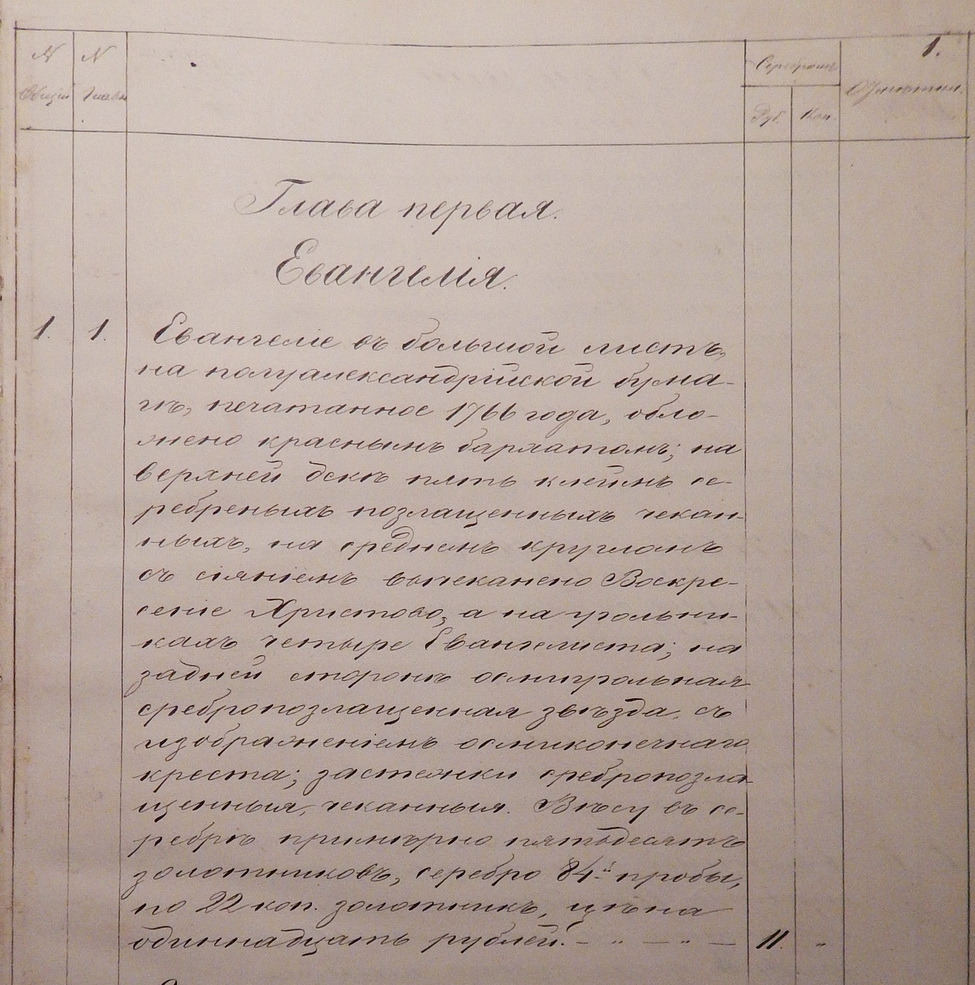 1.
№ № Серебромъ
Общій Главы Руб. Коп. Отмѣтки.
Глава первая.
Евангелія.
1. 1. Евангеліе въ большой листъ,
на полуалександрійской бума-
гѣ, печатанное 1766 года, обло-
жено краснымъ бархатомъ; на
верхней декѣ пять клеймъ се-
ребреныхъ позлащенныхъ чекан-
ныхъ, на среднемъ кругломъ
съ сіяніемъ вычеканено Воскре-
сеніе Христово, а на угольни-
кахъ четыре Евангелиста; на
задней сторонѣ осмиугольная
сребропозлащенная звѣзда, съ
изображеніемъ осмиконечнаго
креста; застежки сребропозла
щенныя, чеканныя. Вѣсу въ се-
ребрѣ примѣрно пятьдесятъ
золотниковъ, серебро 84й пробы,
по 22 коп. золотникъ, цѣна
одиннадцать рублей. – „ – „ – 11. „